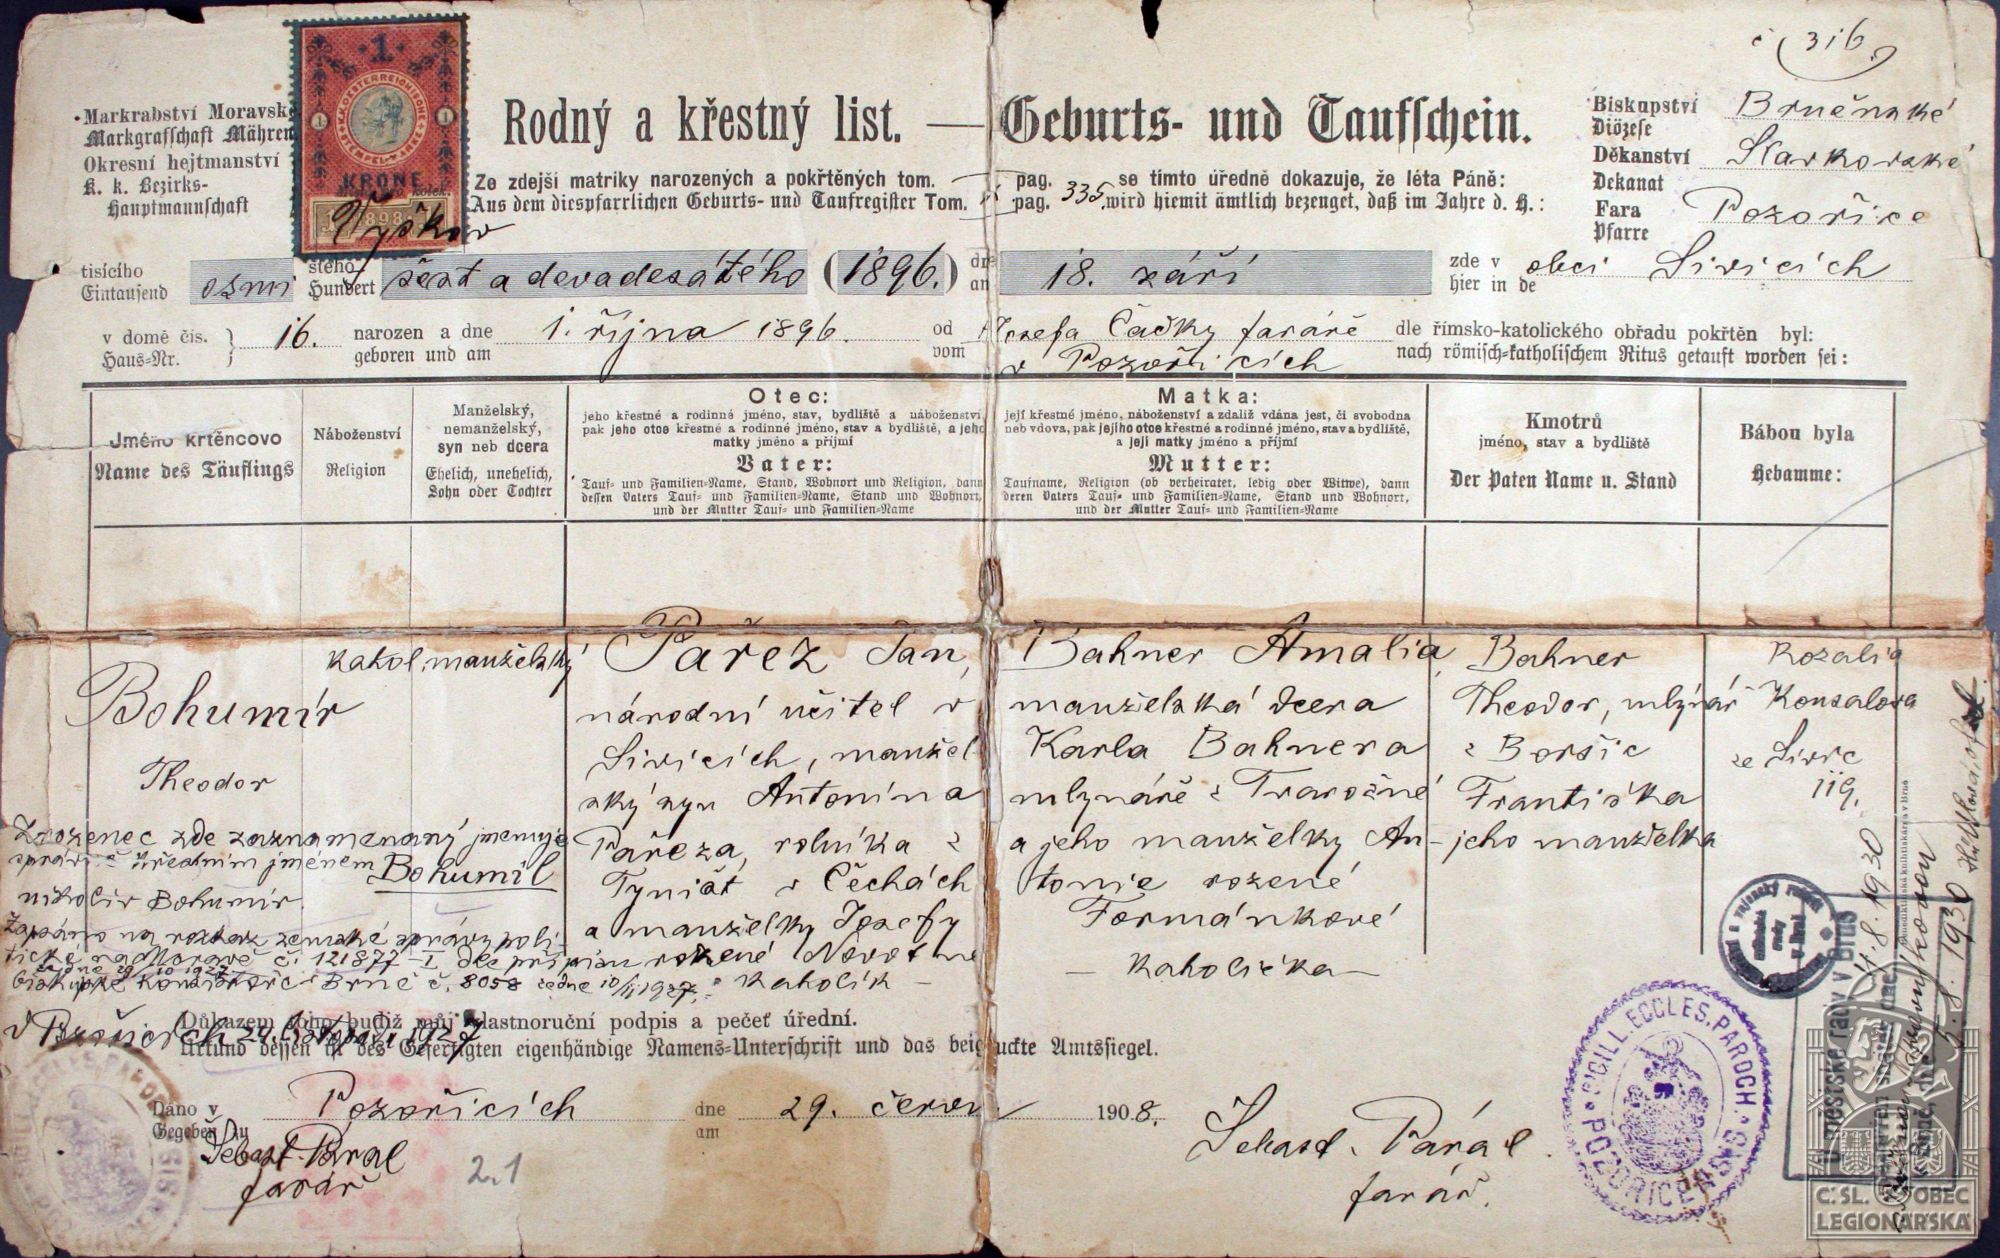 č 316
Markrabství Moravské
Markgrafschaft Mähren
Okresní hejtmanství
K. k. Bezirks-
Hauptmannschaft
Vyškov
1
KRONE
1898
Rodný a křestný list. — Geburts- und Taufschein.
Biskupství Brněnské
Diözese
Děkanství
Dekanat
Fara Pozořice
Pfarre
Ze zdejší matriky narozených a pokřtěných tom. pag. 335. se tímto úředně dokazuje, že léta Páně:
Aus dem diespfarrlichen Geburts- und Taufregister Tom. pag. wird hiemit ämtlich bezeuget, daß im Jahre d. H.:
tisícího osmi stého šest a devadesátého (1896.) dne 18. září zde v obci Sivicích
Eintausend Hundert an hier in de
v domě čís. 16. narozen a dne 1. října 1896. od Josefa Čačky faráře dle římsko-katolického obřadu pokřtěn byl:
Haus-Nr. geboren und am vom v Pozořicích nach römisch-katholischem Ritus getauft worden sei:
Jméno křtěncovo
Name des Täuflings
Náboženství
Religion
Manželský,
nemanželský,
syn neb dcera
Ehelich, unehelich,
Sohn oder Tochter
Otec:
jeho křestné a rodinné jméno, stav, bydliště a náboženství,
pak jeho otce křestné a rodinné jméno, stav a bydliště, a jeho
matky jméno a příjmí
Vater:
Tauf- und Familien-Name, Stand, Wohnort und Religion, dann
dessen Vaters Tauf- und Familien-Name, Stand und Wohnort,
und der Mutter Tauf- und Familien-Name
Matka:
její křestné jméno, náboženství a zdaliž vdána jest, či svobodna
neb vdova, pak jejího otce křestné a rodinné jméno, stav a bydliště,
a její matky jméno a příjmí
Mutter:
Taufname, Religion (ob verheiratet, ledig oder Witwe), dann
deren Vaters Tauf- und Familien-Name, Stand und Wohnort,
und der Mutter Tauf- und Familien-Name
Kmotrů
jméno, stav a bydliště
Der Paten Name u. Stand
Bábou byla
Hebamme:
Bohumír
Theodor
katol. manželský
Pařez Jan,
národní učitel v
Sivicích, manžel-
ský syn Antonína
Pařeza, rolníka z
Týnišť v Čechách
a manželky Josefy
rozené Novotné
katolík –
Bahner Amalia,
manželská dcera
Karla Bahnera
mlynáře z Tvarožné
a jeho manželky An-
tonie rozené
Formánkové
– katolička –
Bahner
Theodor, mlynář
z Boršic
Františka
jeho manželka
Rozalia
Konsalova
ze Sivic
119.
Zrozenec zde zaznamenaný jmenuje
správně úředním jménem Bohumil
nikoliv Bohumír.
Zapsáno na rozkaz zemské správy poli-
tické na Moravě č. 121877-I dle přípisu
ze dne 29/10 1927
biskupské konsistoře v Brně č. 8058 ze dne 10/11 1927.
V Pozořicích 24. listopadu 1927
Šebast. Páral
farář
Důkazem toho budiž můj vlastnoruční podpis a pečeť úřední.
Urkund dessen ist des Gefertigten eigenhändige Namens-Unterschrift und das beigedruckte Amtssiegel.
Dáno v Pozořicích dne 29. června 1908.
Gegeben zu am
Šebast. Páral
farář.
SIGILL. ECCLES. PAROCH. POZOŘICENSIS
2.1
Č. SL. OBEC
LEGIONÁŘSKÁ